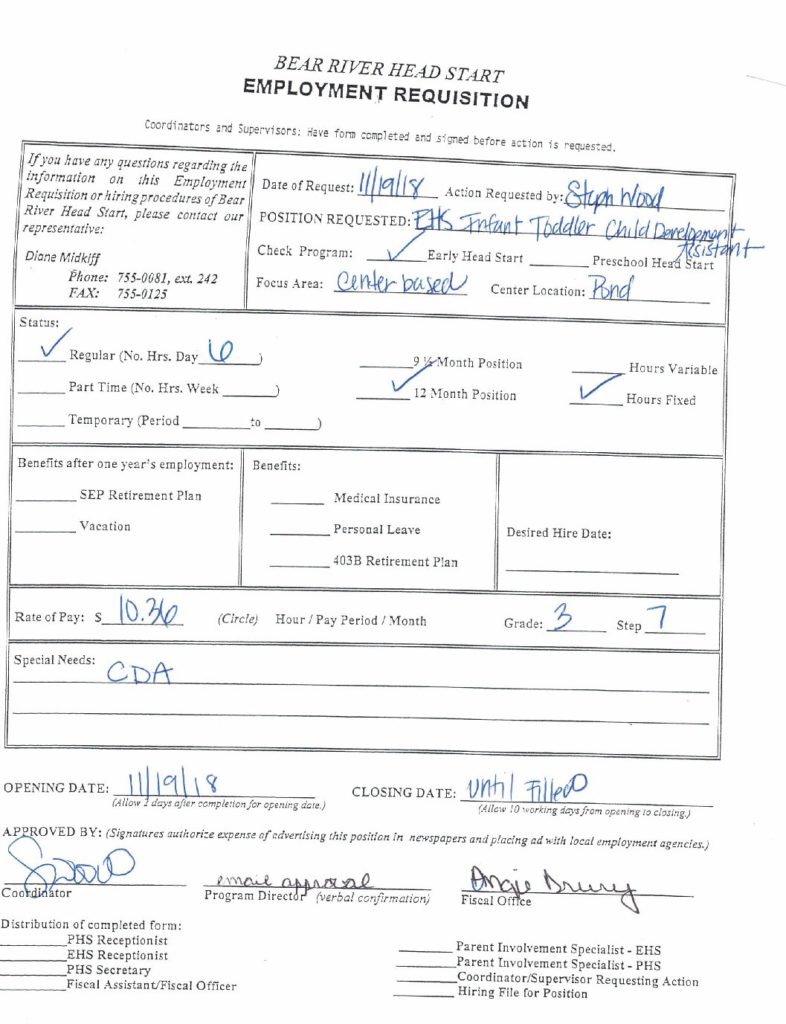 BEAR RIVER HEAD START
EMPLOYMENT REQUISITION
Coordinators and Supervisors: Have form completed and signed before action is requested.
If you have any questions regarding the
information on this Employment
Requisition or hiring procedures of Bear
River Head Start, please contact our
representative:
Diane Midkiff
Phone: 755-0081, ext. 242
FAX: 755-0125
Date of Request: 11/19/18 Action Requested by: Steph Wood
POSITION REQUESTED: EHS Infant Toddler Child Development
Assistant
Check Program: ✓ Early Head Start ______ Preschool Head Start
Focus Area: Center based Center Location: Pond
Status:
✓ Regular (No. Hrs. Day 6 ) ______ 9 ½ Month Position ______ Hours Variable
______ Part Time (No. Hrs. Week ______) ✓ 12 Month Position ✓ Hours Fixed
______ Temporary (Period ______ to ______)
Benefits after one year's employment:
______ SEP Retirement Plan
______ Vacation
Benefits:
______ Medical Insurance
______ Personal Leave
______ 403B Retirement Plan
Desired Hire Date:
Rate of Pay: $ 10.36 (Circle) Hour / Pay Period / Month Grade: 3 Step 7
Special Needs: CDA
OPENING DATE: 11/19/18 CLOSING DATE: Until Filled
(Allow 2 days after completion for opening date.) (Allow 10 working days from opening to closing.)
APPROVED BY: (Signatures authorize expense of advertising this position in newspapers and placing ad with local employment agencies.)
SWood email approval Angie Drury
Coordinator Program Director (verbal confirmation) Fiscal Office
Distribution of completed form:
______ PHS Receptionist
______ EHS Receptionist
______ PHS Secretary
______ Fiscal Assistant/Fiscal Officer
______ Parent Involvement Specialist - EHS
______ Parent Involvement Specialist - PHS
______ Coordinator/Supervisor Requesting Action
______ Hiring File for Position